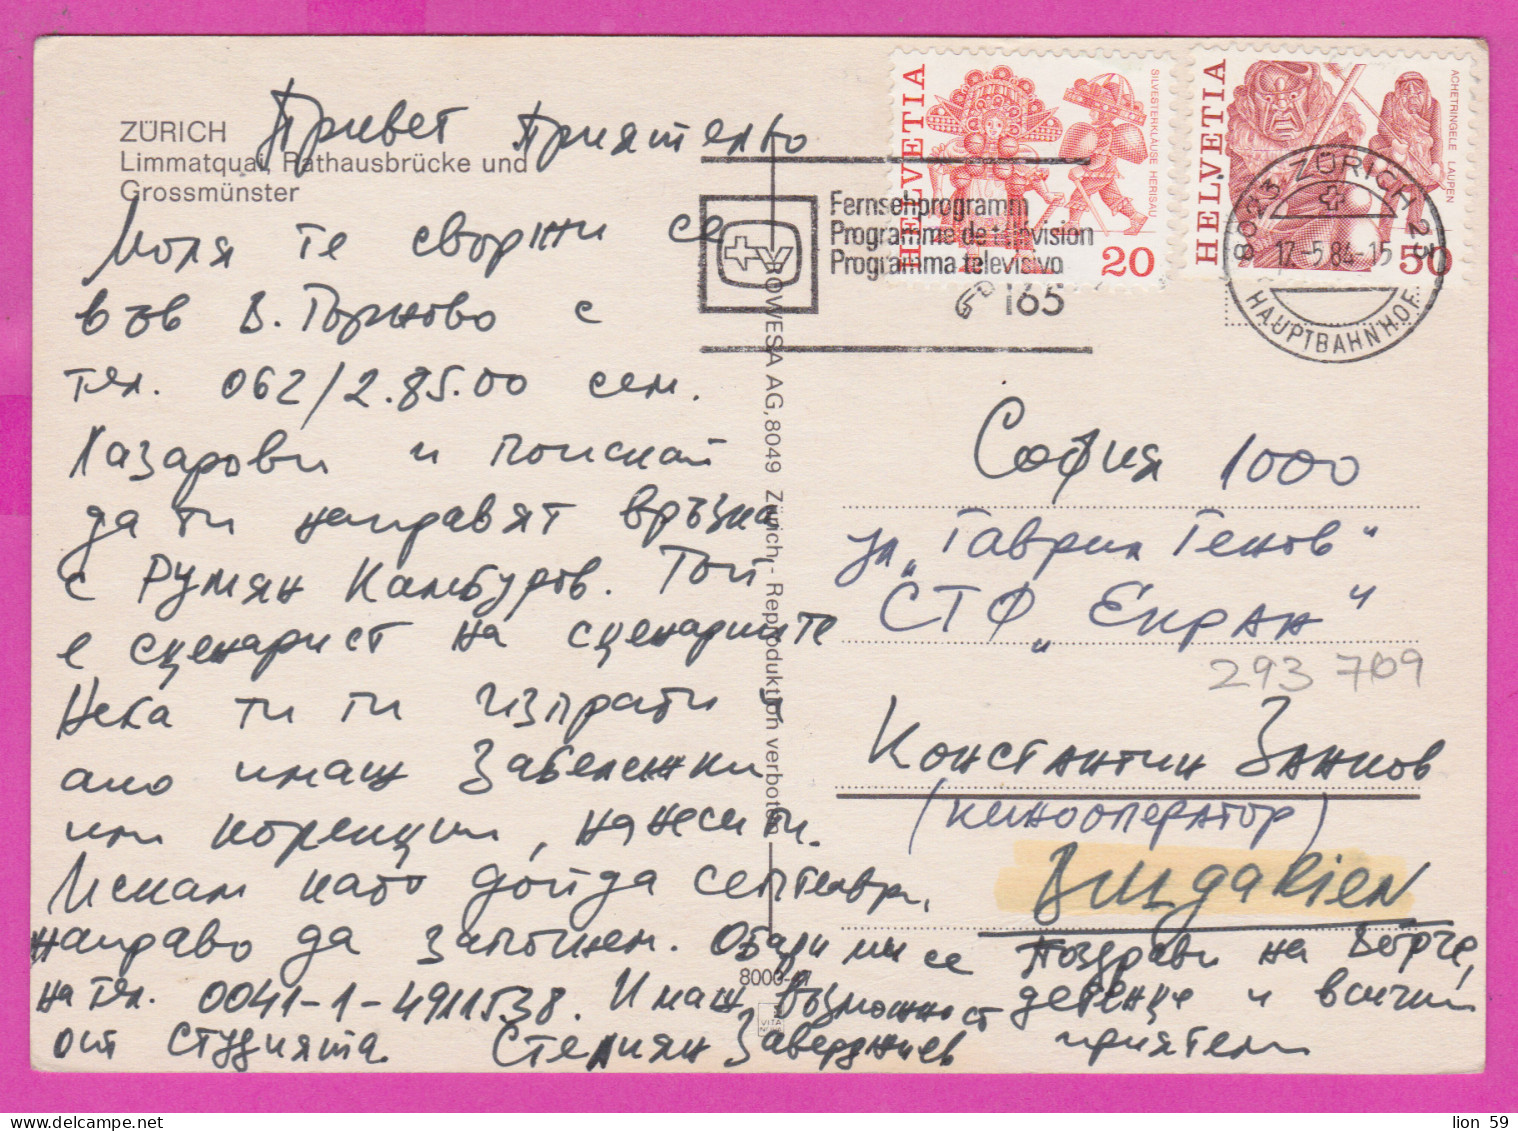 ZÜRICH
Limmatquai, Rathausbrücke und
Grossmünster
Привет Приятелю
Моля те свържи се
във В. Търново с
тел. 062/2.85.00 сем.
Хазарови и поискай
да ти направят връзка
с Румян Камбуров. Той
е сценарист на сценариите
Нека ти ги изпрати и
ако имаш забележки
или корекции, нанеси ги.
Искам като дойда септември,
направо да започнем. Обади ми се
на тел. 0041-1-4911538. Имаш възможност
от студията. Стелиян Заверджиев
Поздрави на Вебрче,
деренце и всички
приятели
HELVETIA
SILVESTERKLÄUSE HERISAU
20
HELVETIA
ACHETRINGELE LAUPEN
50
Fernsehprogramm
Programme de télévision
Programma televisivo
165
8023 ZÜRICH 23
17.-5.84-15
HAUPTBAHNHOF
ROWESA AG, 8049 Zürich - Reproduktion verboten
София 1000
ул „Гаврил Генов"
СТФ „Екран"
293 709
Константин Занков
(кинооператор)
Bulgarien
lion 59